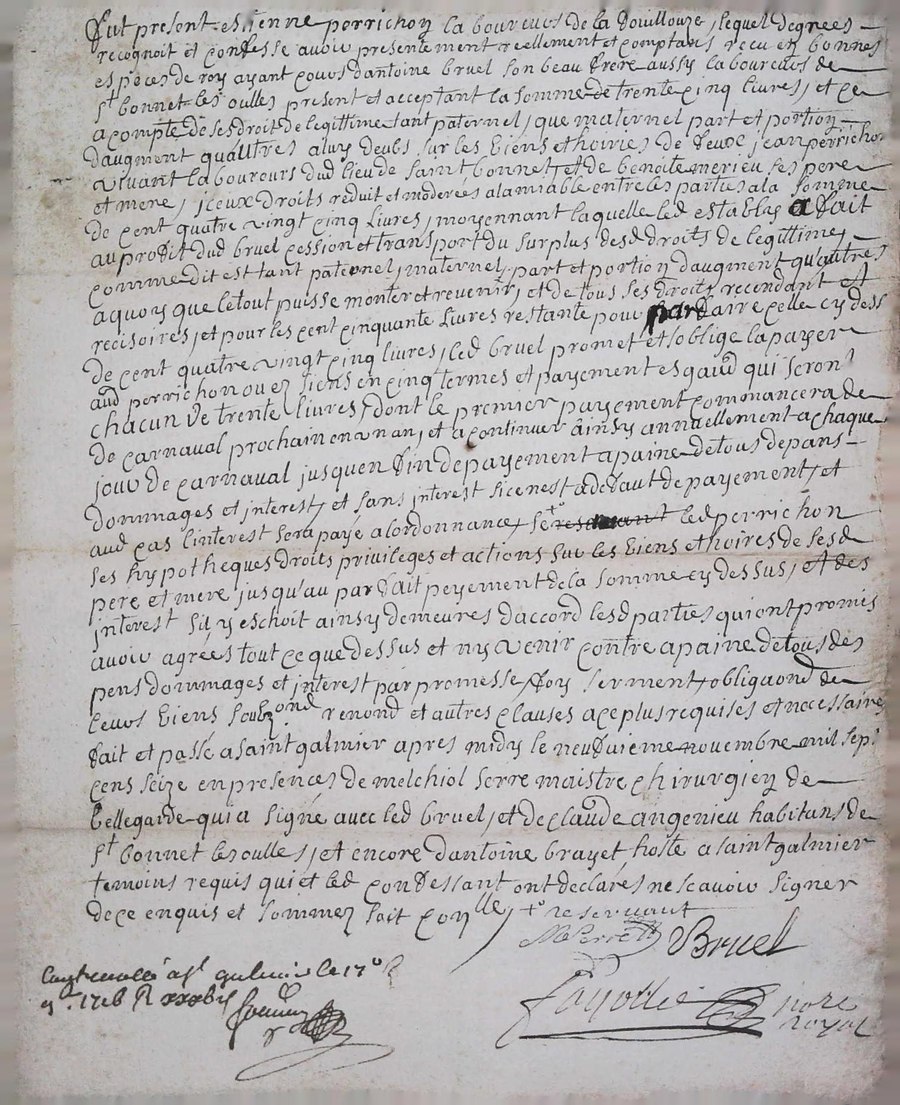 fut present estienne perrichon laboureuos de la fouillouze, lequel degrees
recognoit et confesse avoir presentement reellement et comptans recu en bonnes
espoces de roy ayant couos dantoine bruel son beau frere aussy laboureuos de
st bonnet les oulles present et acceptant la somme de trente cinq livres, et ce
acompte de ses droit de legittime tant paternel, que maternel part et portion
daugment quauttres aluy deubs sur les biens et hoiries de feux jean perrichon
vivant laboureurs dud lieu de saint bonnet, et de benoite merieu ses pere
et mere, jceux droits reduit et moderes alamiable entre les parties ala somme
de cent quatre vingt cinq livres, moyennant laquelle led estably a fait
au profit dud bruel cession et transport du surplus desd droits de legittime,
comme dit est tant paternel, maternel, part et portion daugment quautres
aquoys que le tout puisse monter et revenir, et de tous ses droits recendant et
recisoires, et pour les cent cinquante livres restante pour parfaire celle cy dess
de cent quatre vingt cinq livres, led bruel promet et soblige la payer
aud perrichon ou ez siens en cinq termes et payement esgaud qui seront
chacun de trente livres, dont le premier payement commancera de
de carnaval prochain en un an, et a continuer ainsy annuellement a chaque
jour de carnaval jusquen fin de payement apaine de tous depans
dommages et interest, et sans interest si ce nest adefaut de payement, et
aud cas linterest sera paye alordonnance, se +o led perrichon
ses hypotheques droits privileges et actions sur les biens et hoires de sesd
pere et mere jusqu'au parfait peyement de la somme cy dessus, et des
interest sil y eschoit ainsy demeures daccord lesd parties qui ont promis
avoir agrees tout ce que dessus et ny venir contre apaine de tous des
pens dommages et interest par promesse foy serment, obligaond de
leuos biens soubzond renond et autres clauses a ce plus requises et necessaires
fait et passé a saint galmier apres midy le neufvieme novembre mil sept
cens seize en presences de melchiol serre maistre chirurgien de
bellegarde qui a signé avec led bruel, et de claude angenieu habitans de
st bonnet les oulles, et encore dantoine brayet hoste a saint galmier
temoins requis qui et led confessant ont declarés ne scavoir signer
de ce enquis et sommez fait conlle, +o reservant
Bruel
fayolle nore
royal
a st galmier le 17e
1716